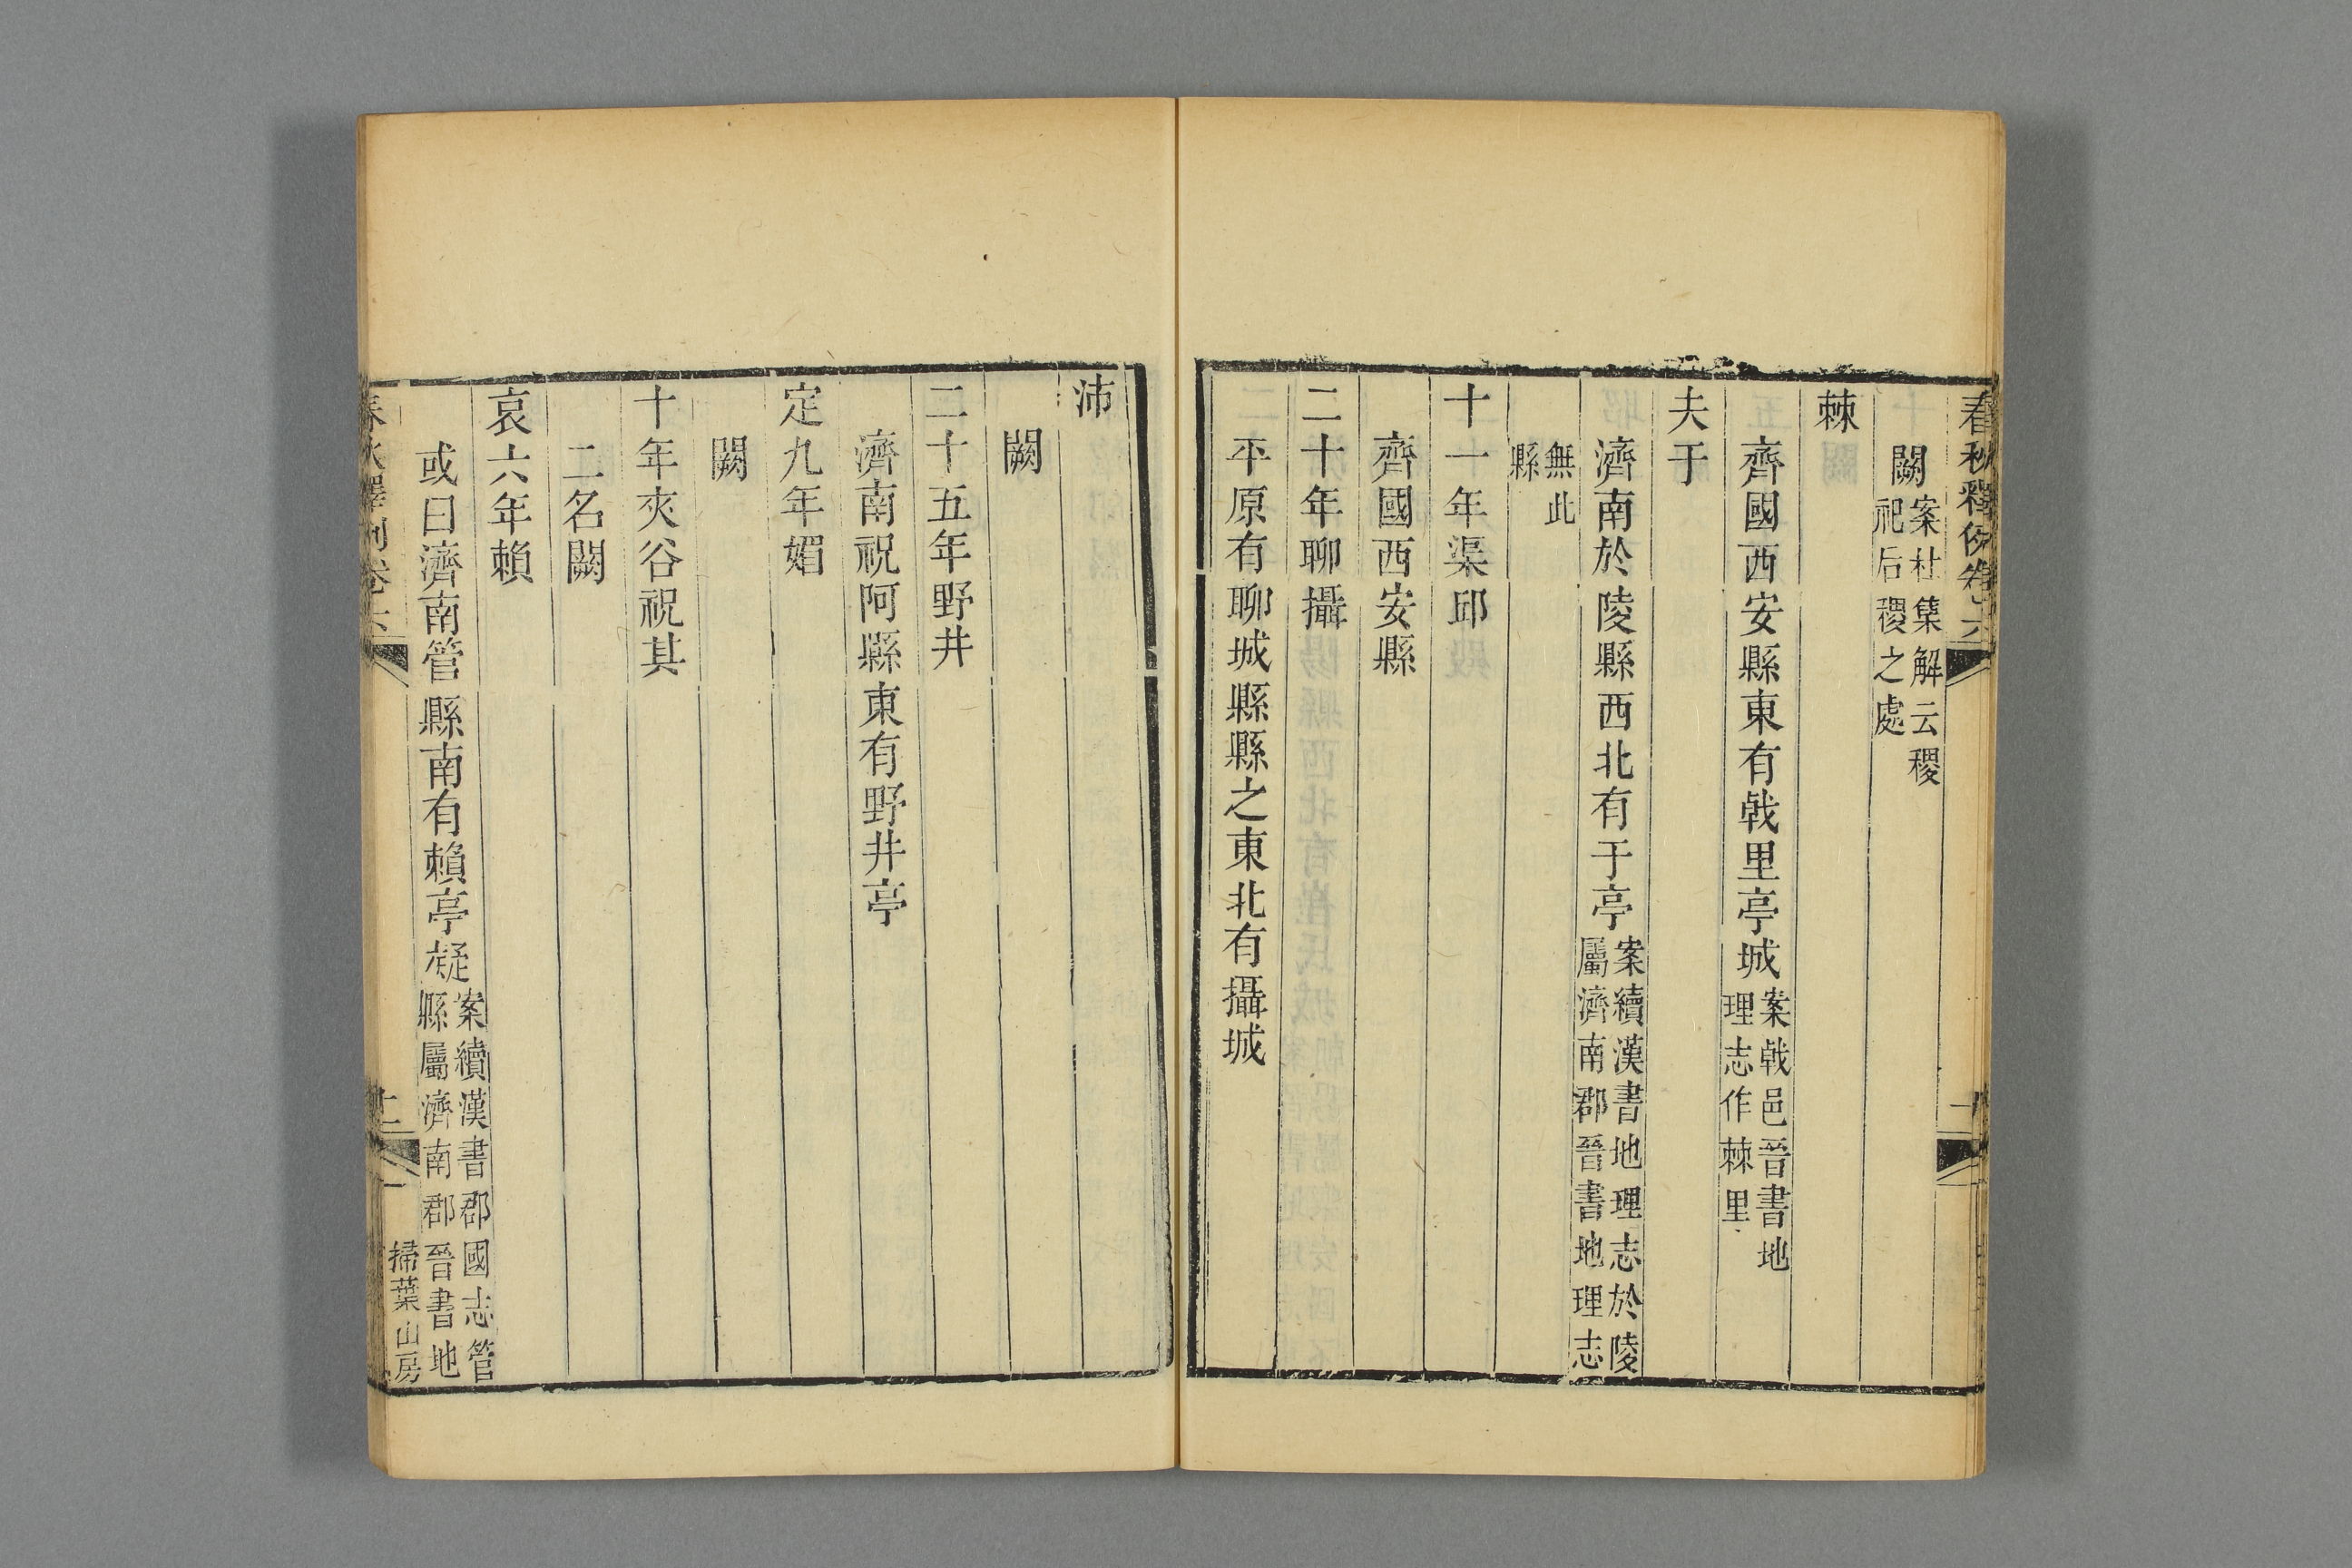 春秋釋例卷六
闕案杜集解云稷祀后稷之處
棘
齊國西安縣東有㦸里亭城案㦸邑晉書地理志作棘里
夫于
濟南於陵縣西北有于亭案續漢書地理志於陵屬濟南郡晉書地理志
無此縣
十一年渠邱
齊國西安縣
二十年聊攝
平原有聊城縣縣之東北有攝城
沛
闕
二十五年野井
濟南祝阿縣東有野井亭
定九年媚
闕
十年夾谷祝其
二名闕
哀六年賴
或曰濟南管縣南有賴亭疑案續漢書郡國志管縣屬濟南郡晉書地
春秋釋例卷六 十二 掃葉山房